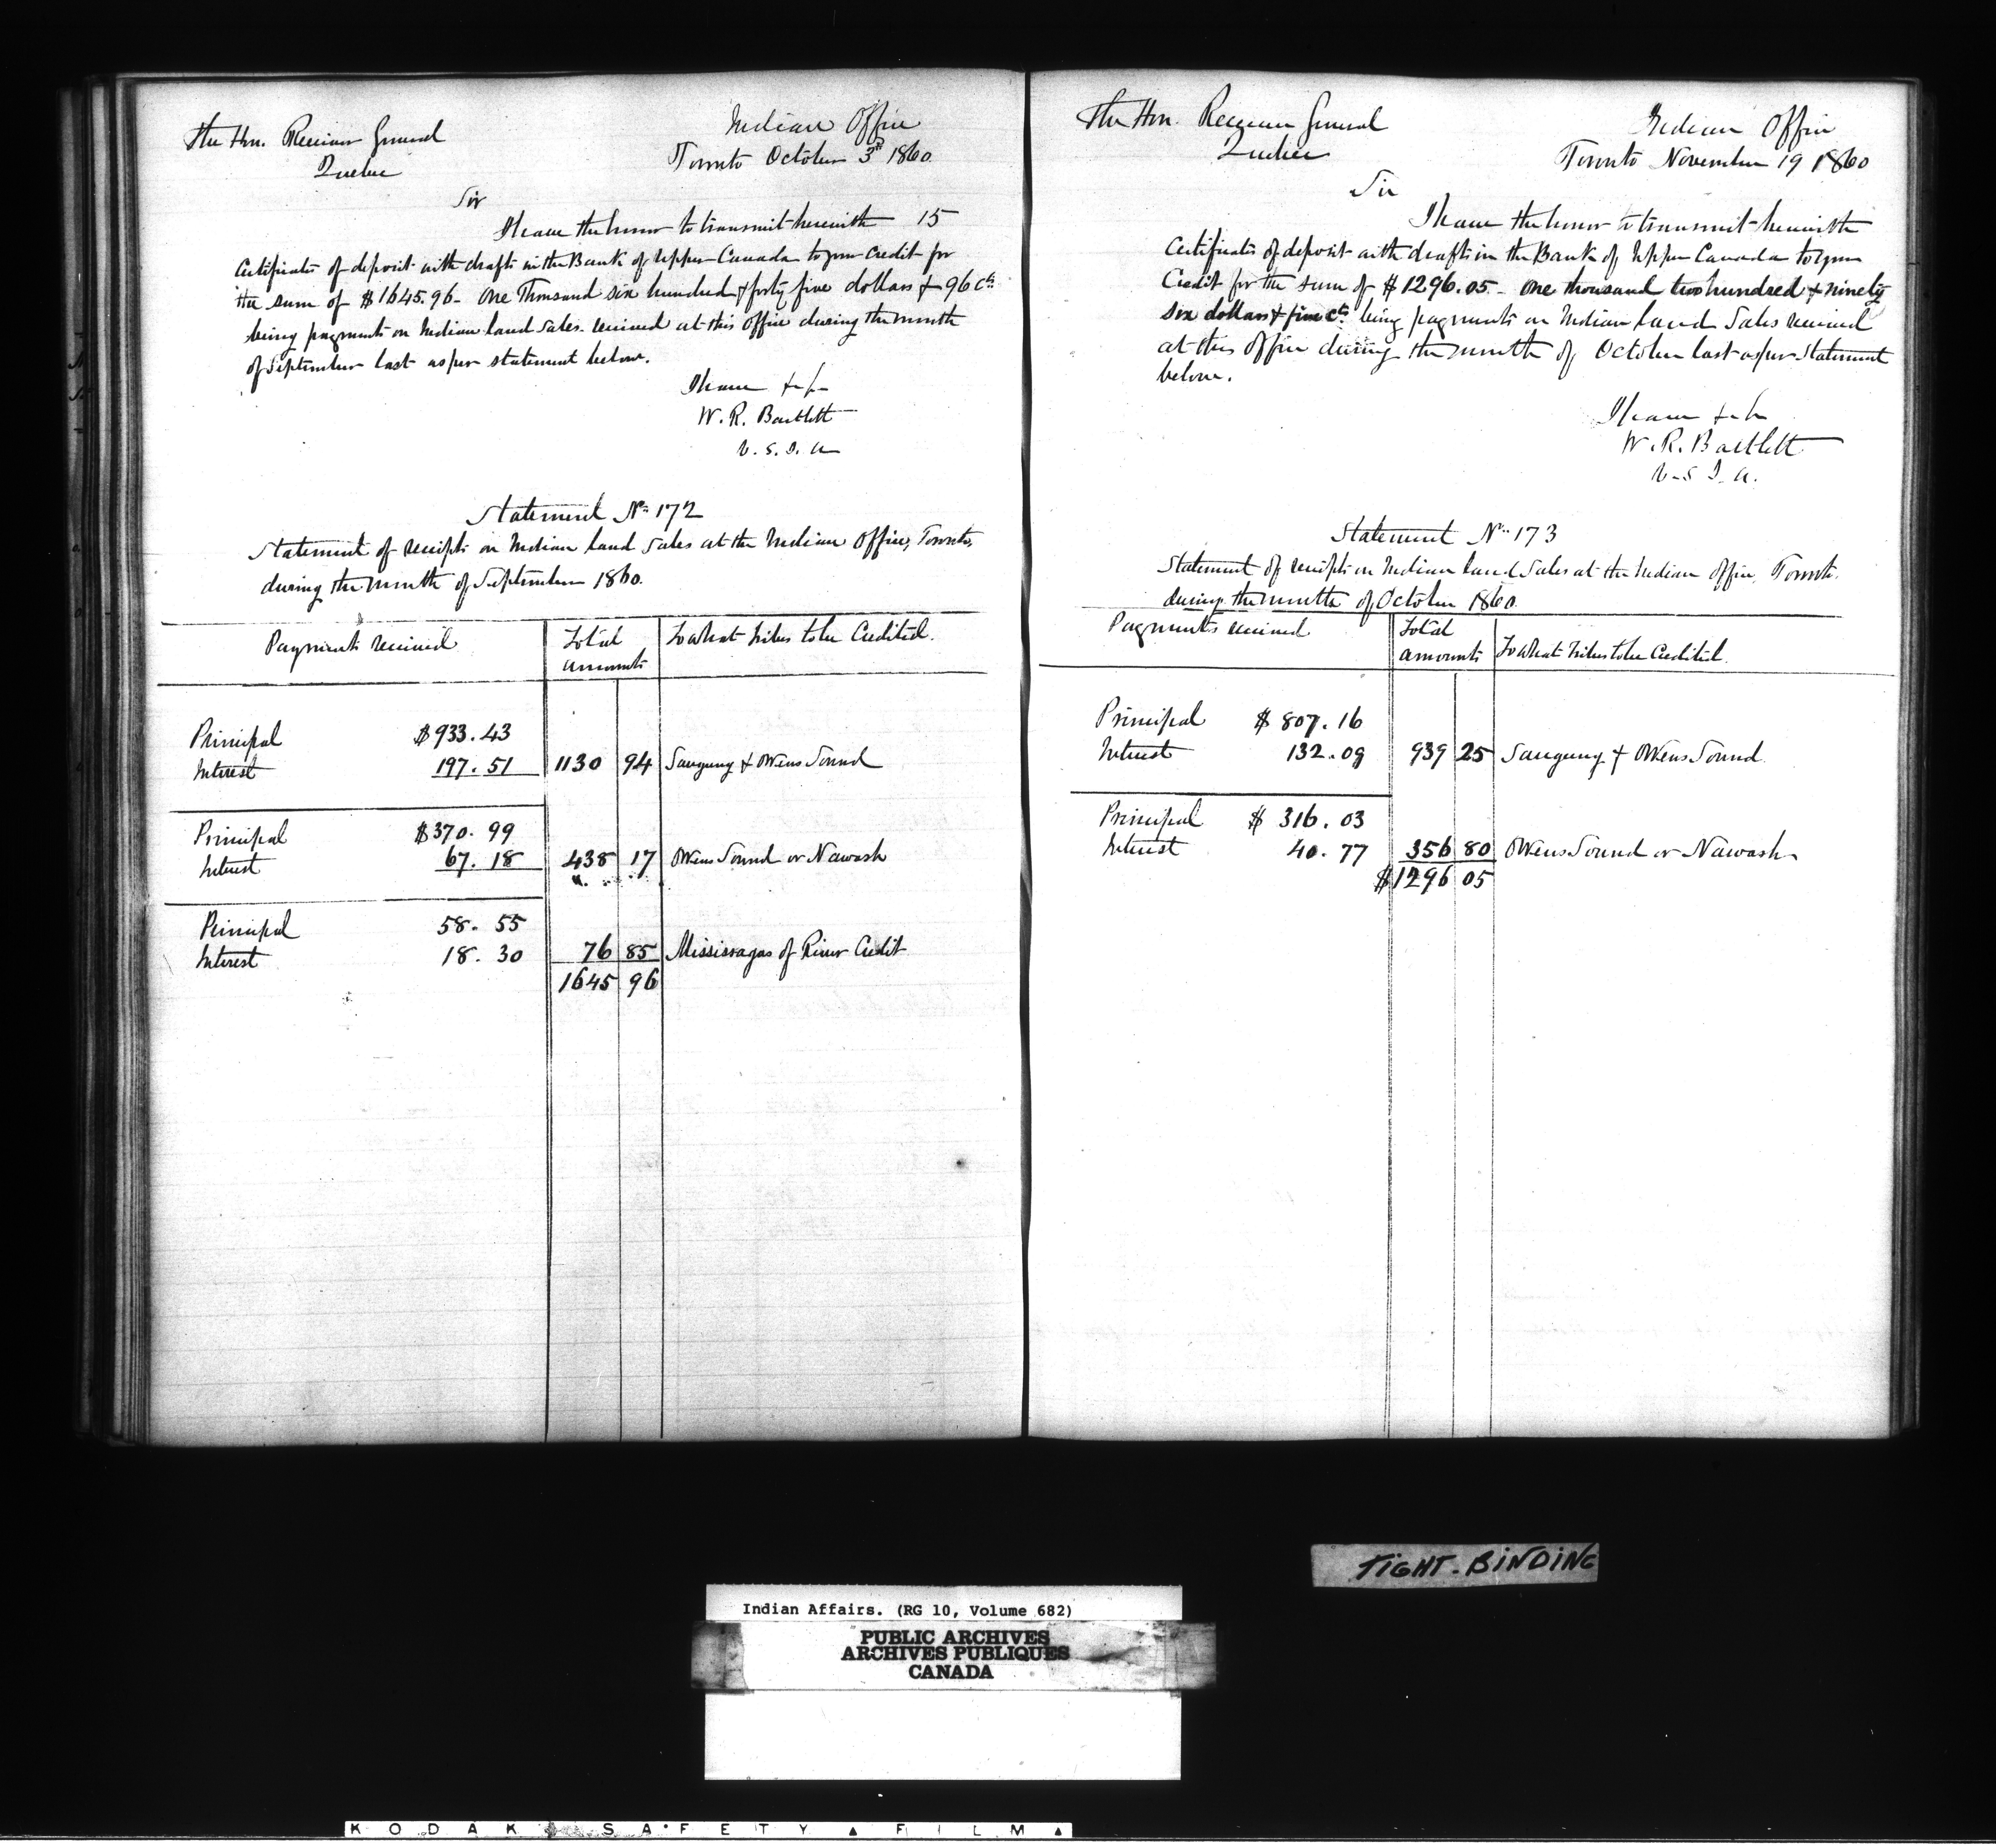 The Hon. Receiver General
Quebec
Indian Office
Toronto October 3rd 1860.
Sir
I have the honor to transmit herewith 15
Certificates of deposit with drafts in the Bank of Upper Canada to your credit for
the sum of $1645.96 - One Thousand six hundred & forty five dollars & 96 cts
being payments on Indian land sales received at this office during the month
of September last as per statement below.
I have &c
W. R. Bartlett
V. S. I. A
Statement No 172
Statement of receipts on Indian land Sales at the Indian Office, Toronto,
during the month of September 1860.
Payments received
Total amounts
To what tribes to be Credited.
Principal $933.43
Interest 197.51 1130 94 Saugung & Owens Sound
Principal $370.99
Interest 67.18 438 17 Owens Sound or Nawash
Principal 58.55
Interest 18.30 76 85 Mississagas of River Credit
1645 96
The Hon. Receiver General
Quebec
Indian Office
Toronto November 19 1860
Sir
I have the honor to transmit herewith
Certificates of deposit with drafts in the Bank of Upper Canada to your
Credit for the sum of $1296.05 - One thousand two hundred & ninety
six dollars & five cts being payments on Indian land Sales received
at this office during the month of October last as per Statement
below.
I have &c
W. R. Bartlett
V. S. I. A.
Statement No 173
Statement of receipts on Indian land Sales at the Indian Office, Toronto.
during the month of October 1860.
Payments received
Total amounts
To what tribes to be Credited.
Principal $807.16
Interest 132.09 939 25 Saugung & Owens Sound.
Principal $316.03
Interest 40.77 356 80 Owens Sound or Nawash
$1296 05
TIGHT-BINDING
Indian Affairs. (RG 10, Volume 682)
PUBLIC ARCHIVES
ARCHIVES PUBLIQUES
CANADA
KODAK SAFETY FILM